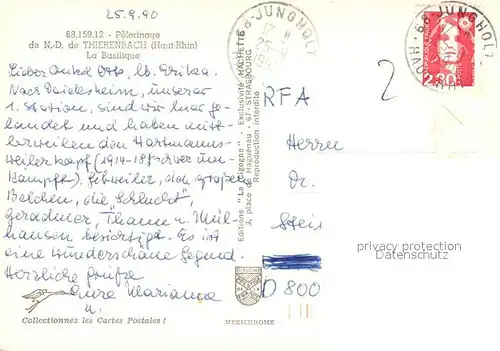 25.9.90
68.159.12 - Pèlerinage
de N.-D. de THIERENBACH (Haut-Rhin)
La Basilique
Lieber Onkel Otto, lb. Erika.
Nach Deidesheim, unserer
1. Station, sind wir hier ge-
landet und haben mitt-
lerweilen den Hartmanns-
weilerkopf (1914-18 schwer um-
kämpft), Gebweiler, den großen
Belchen, die "Schlucht",
Gerardmer, Thann u. Mül-
hausen besichtigt. Es ist
eine wunderschöne Gegend.
Herzliche Grüße
Eure Marianna
u.
Collectionnez les Cartes Postales !
Editions "La Cigogne" - Exclusivité HACHETTE
3, place de Haguenau - 67-STRASBOURG
Reproduction interdite
MEXICHROME
68 JUNGHOLTZ
17 H
25-9
1990
68 JUNGHOLTZ
HAUT
2,30
2
RFA
Herrn
Dr.
Stein
D 800
privacy protection
Datenschutz